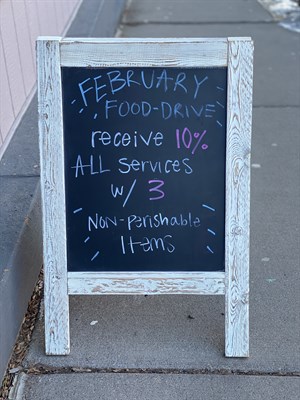 FEBRUARY
FOOD-DRIVE
receive 10%
ALL Services
w/ 3
Non-Perishable
Items